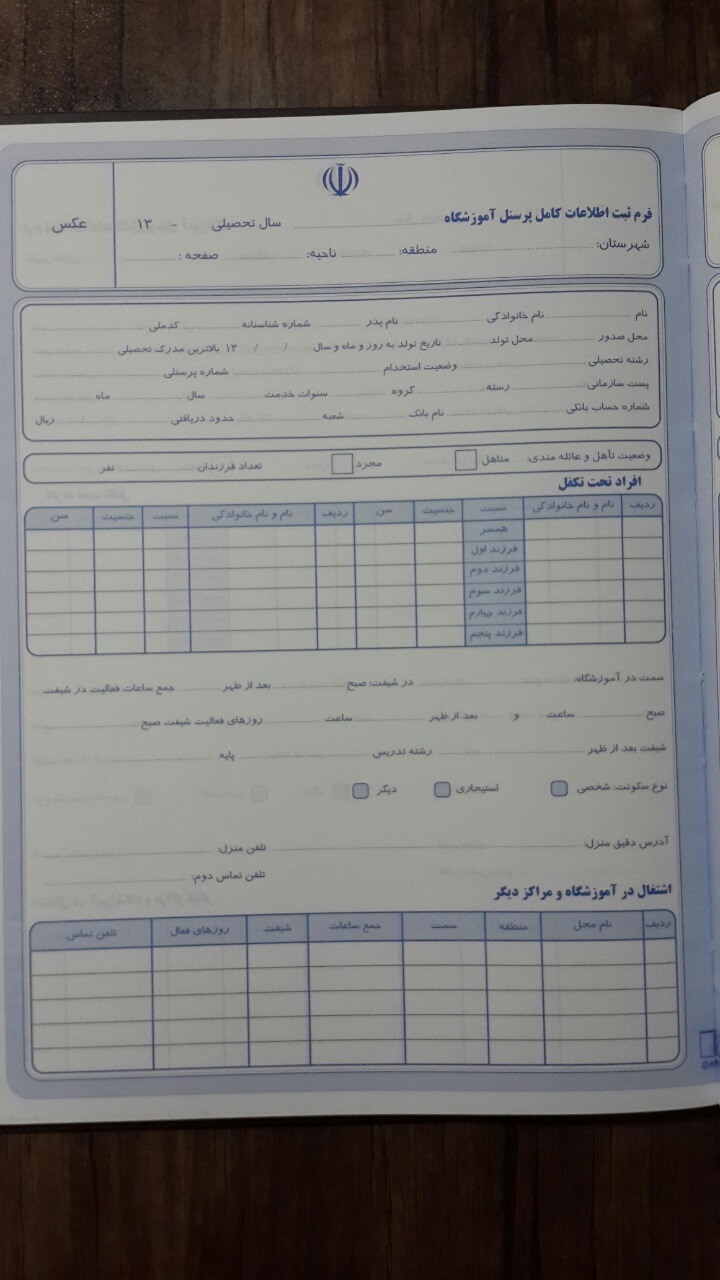 فرم ثبت اطلاعات کامل پرسنل آموزشگاه سال تحصیلی - ۱۳ عکس
شهرستان: منطقه: ناحیه: صفحه :
نام نام خانوادگی نام پدر شماره شناسنامه کدملی
محل صدور محل تولد تاریخ تولد به روز و ماه و سال / / ۱۳ بالاترین مدرک تحصیلی
رشته تحصیلی وضعیت استخدام شماره پرسنلی
پست سازمانی رسته گروه سنوات خدمت سال ماه
شماره حساب بانکی نام بانک شعبه حدود دریافتی ریال
وضعیت تأهل و عائله مندی: متاهل مجرد تعداد فرزندان نفر
افراد تحت تکفل
ردیف نام و نام خانوادگی نسبت جنسیت سن ردیف نام و نام خانوادگی نسبت جنسیت سن
همسر
فرزند اول
فرزند دوم
فرزند سوم
فرزند چهارم
فرزند پنجم
سمت در آموزشگاه: در شیفت: صبح بعد از ظهر جمع ساعات فعالیت در شیفت
صبح ساعت و بعد از ظهر ساعت روزهای فعالیت شیفت صبح
شیفت بعد از ظهر رشته تدریس پایه
نوع سکونت: شخصی استیجاری دیگر
آدرس دقیق منزل: تلفن منزل:
تلفن تماس دوم:
اشتغال در آموزشگاه و مراکز دیگر
ردیف نام محل منطقه سمت جمع ساعات شیفت روزهای فعال تلفن تماس